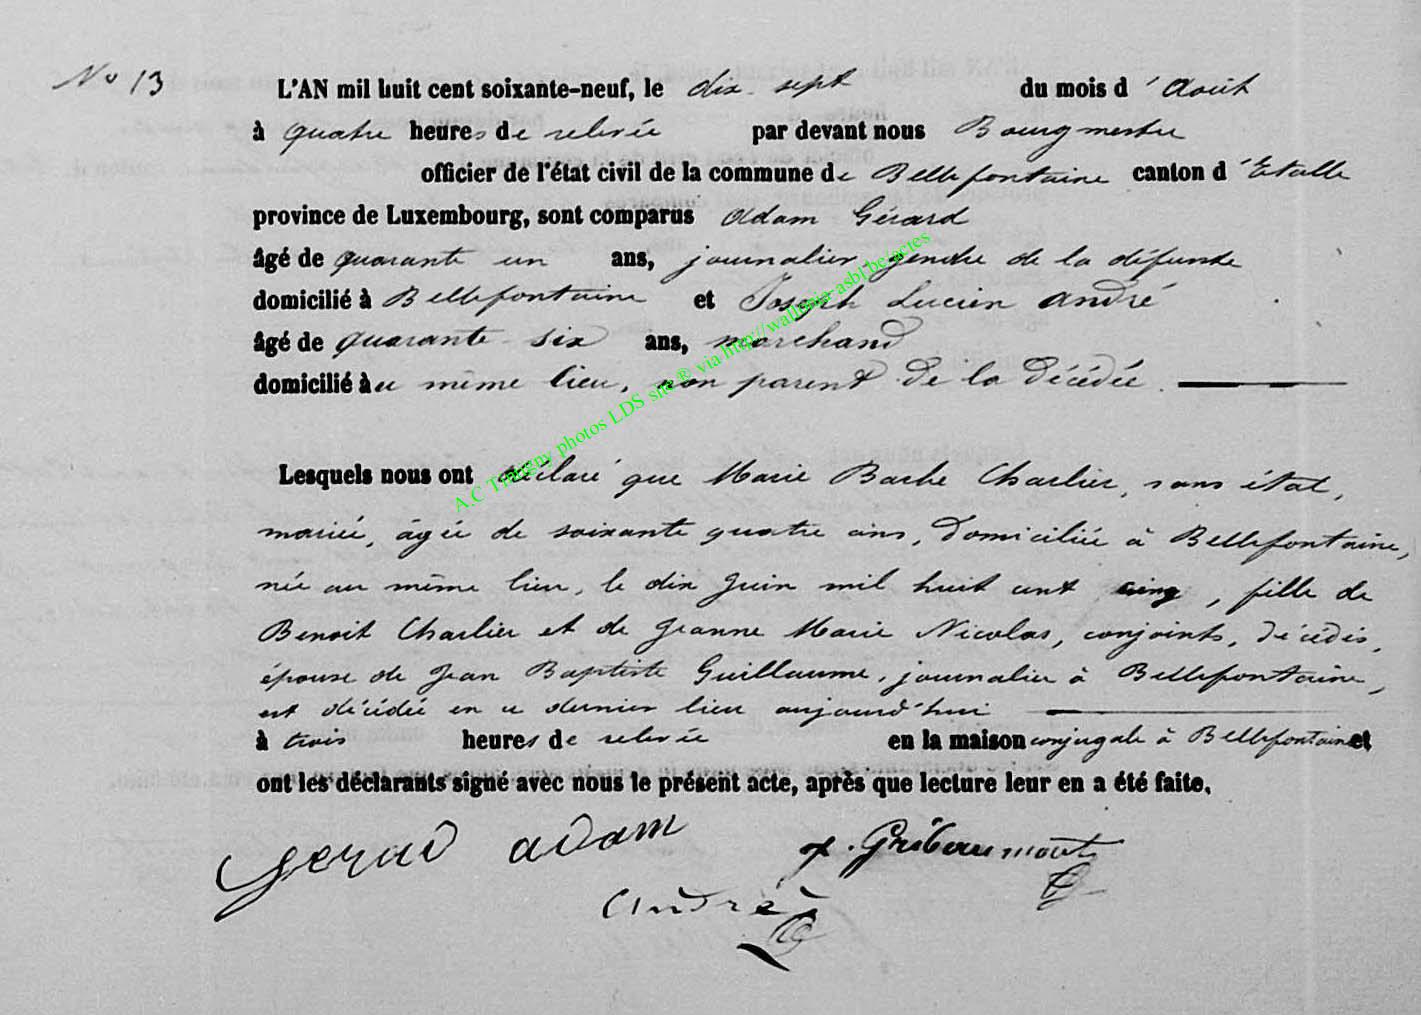 No 13
L'AN mil huit cent soixante-neuf, le dix sept du mois d'Août
à quatre heures de relevée par devant nous Bourgmestre
officier de l'état civil de la commune de Bellefontaine canton d'Etalle
province de Luxembourg, sont comparus Adam Gérard
âgé de quarante un ans, journalier, gendre de la défunte
domicilié à Bellefontaine et Joseph Lucien André
âgé de quarante six ans, marchand
domicilié au même lieu, non parent de la décédée.
Lesquels nous ont déclaré que Marie Barbe Charlier, sans état,
mariée, âgée de soixante quatre ans, domiciliée à Bellefontaine,
née au même lieu, le dix Juin mil huit cent cinq, fille de
Benoit Charlier et de Jeanne Marie Nicolas, conjoints, décédés,
épouse de Jean Baptiste Guillaume, journalier à Bellefontaine,
est décédée en ce dernier lieu aujourd'hui
à trois heures de relevée en la maison conjugale à Bellefontaine et
ont les déclarants signé avec nous le présent acte, après que lecture leur en a été faite.
Gerard adam
Gribaumont
André
A.C Tintigny photos LDS site ® via http://wallonia-asbl.be/actes